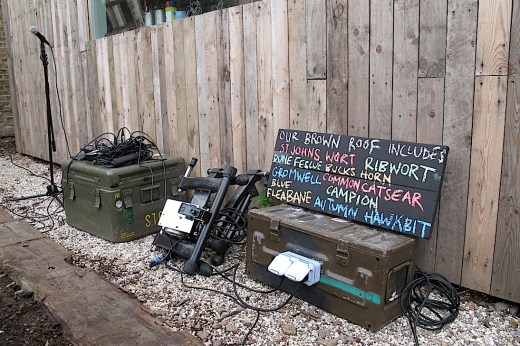 OUR BROWN ROOF INCLUDES
ST JOHNS WORT RIBWORT
DUNE FESCUE BUCKS HORN
GROMWELL COMMON CATSEAR
BLUE CAMPION
FLEABANE AUTUMN HAWKBIT